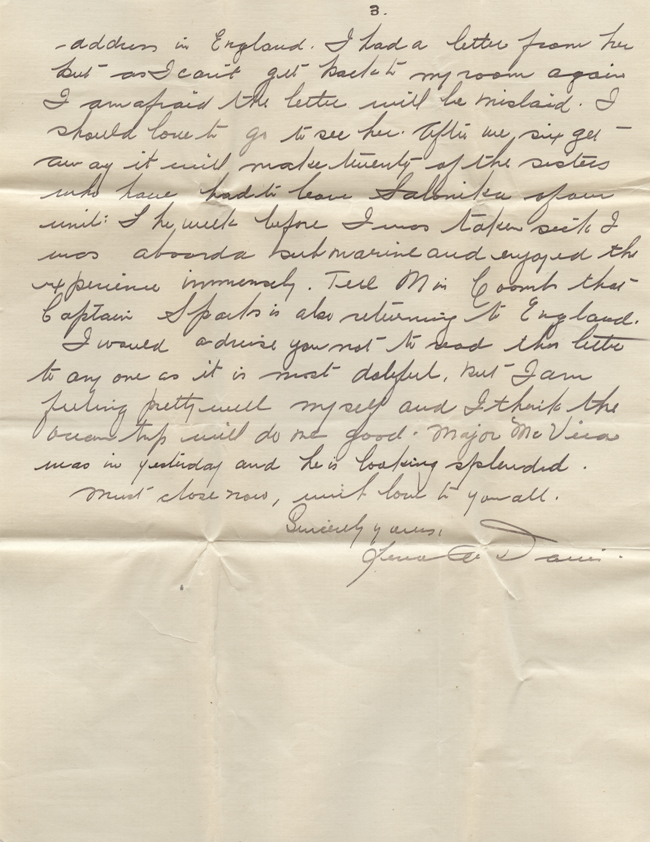 3.
address in England. I had a letter from her
but as I can't get back to my room again
I am afraid the letter will be mislaid. I
should love to go to see her. After we six get
away it will make twenty of the sisters
who have had to leave Salonika of our
unit. The week before I was taken sick I
was aboard a submarine and enjoyed the
experience immensely. Tell Miss Coombs that
Captain Sparks is also returning to England.
I would advise you not to read this letter
to any one as it is most doleful, but I am
feeling pretty well myself and I think the
ocean trip will do me good. Major
was in yesterday and he is looking splendid.
Must close now, with love to you all.
Sincerely yours,
Davis.